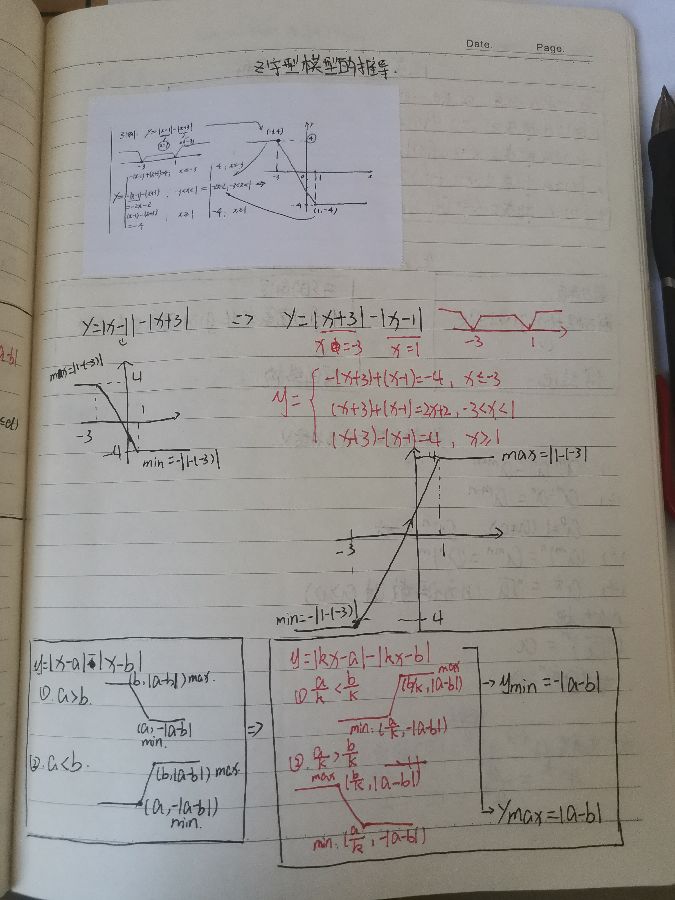 Date. Page.
Z字型模型的推导.
y=|x-1|-|x+3|
(-3,4)
-(x-1)+(x+3)=4, x≤-3
y= -(x-1)-(x+3) , -3<x<1
=-2x-2
(x-1)-(x+3) , x≥1
=-4
4, x≤-3
-2x-2, -3<x<1
-4, x≥1
-3 1
4
-3 0 1 x
-4 (1,-4)
y=|x-1|-|x+3| => y=|x+3|-|x-1|
x=-3 x=1
-3 1
max=|1-(-3)|
4
1
-3
-4
min=-|1-(-3)|
y= -(x+3)+(x-1)=-4, x≤-3
(x+3)+(x-1)=2x+2, -3<x<1
(x+3)-(x-1)=4, x≥1
4 max=|1-(-3)|
-3 1
min=-|1-(-3)| -4
y=|x-a|-|x-b|
① a>b.
(b,|a-b|) max
(a,-|a-b|)
min.
② a<b.
(b,|a-b|) max.
(a,-|a-b|)
min.
=>
y=|kx-a|-|kx-b|
① a/k < b/k
max
(b/k,|a-b|)
min. (a/k,-|a-b|)
② a/k > b/k
max (b/k,|a-b|)
min. (a/k,-|a-b|)
→ ymin=-|a-b|
→ ymax=|a-b|